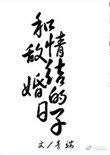 和情敌结婚的日子
文/青端